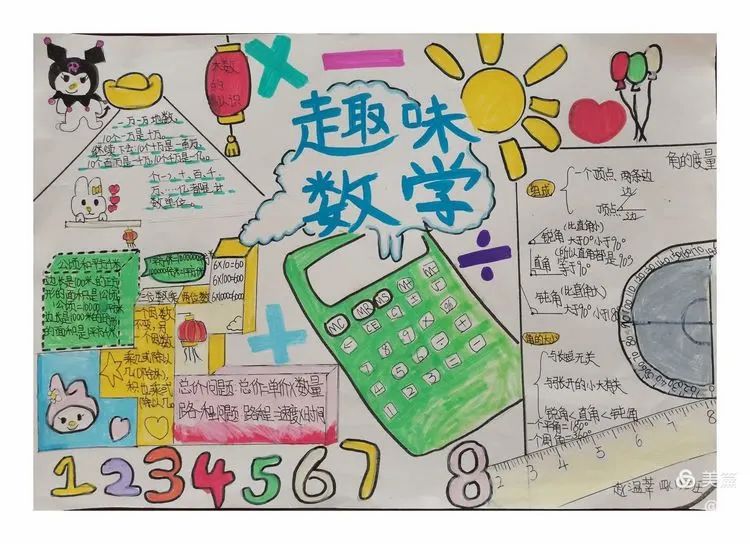 大数
的
认识
趣味
数学
一万一万地数,
10个一万是十万。
继续下去,10个十万是一百万,
10个百万是一千万,10个千万是一亿。
个、一、十、百、千、
万……亿都是计
数单位。
公顷和平方千米
边长是100米的正方
形的面积是1公顷
1公顷=10000平方米
边长是1000米的正方形
的面积是1平方千米
6X10=60
6X100=600
6X1000=6000
三位数乘两位数
一个因数
不变,另一
个因数
乘几或除以
几(0除外),
积也乘或
除以几。
总价问题:总价=单价X数量
路程问题:路程=速度X时间
MC
MR
MS
M+
M-
CE
7
8
9
4
5
6
1
2
3
0
1 2 3 4 5 6 7 8
角的度量
组成
一个顶点、两条边
边
顶点
边
锐角(比直角小)
大于0°小于90°
直角(所以直角都是90°)
等于90°
钝角(比直角大)
大于90°小于18
角的大小
与长短无关
与张开的大小有关
锐角<直角<钝角
一个平角=180°
一个周角=360°
2 3 4 5 6 7 8
美篇